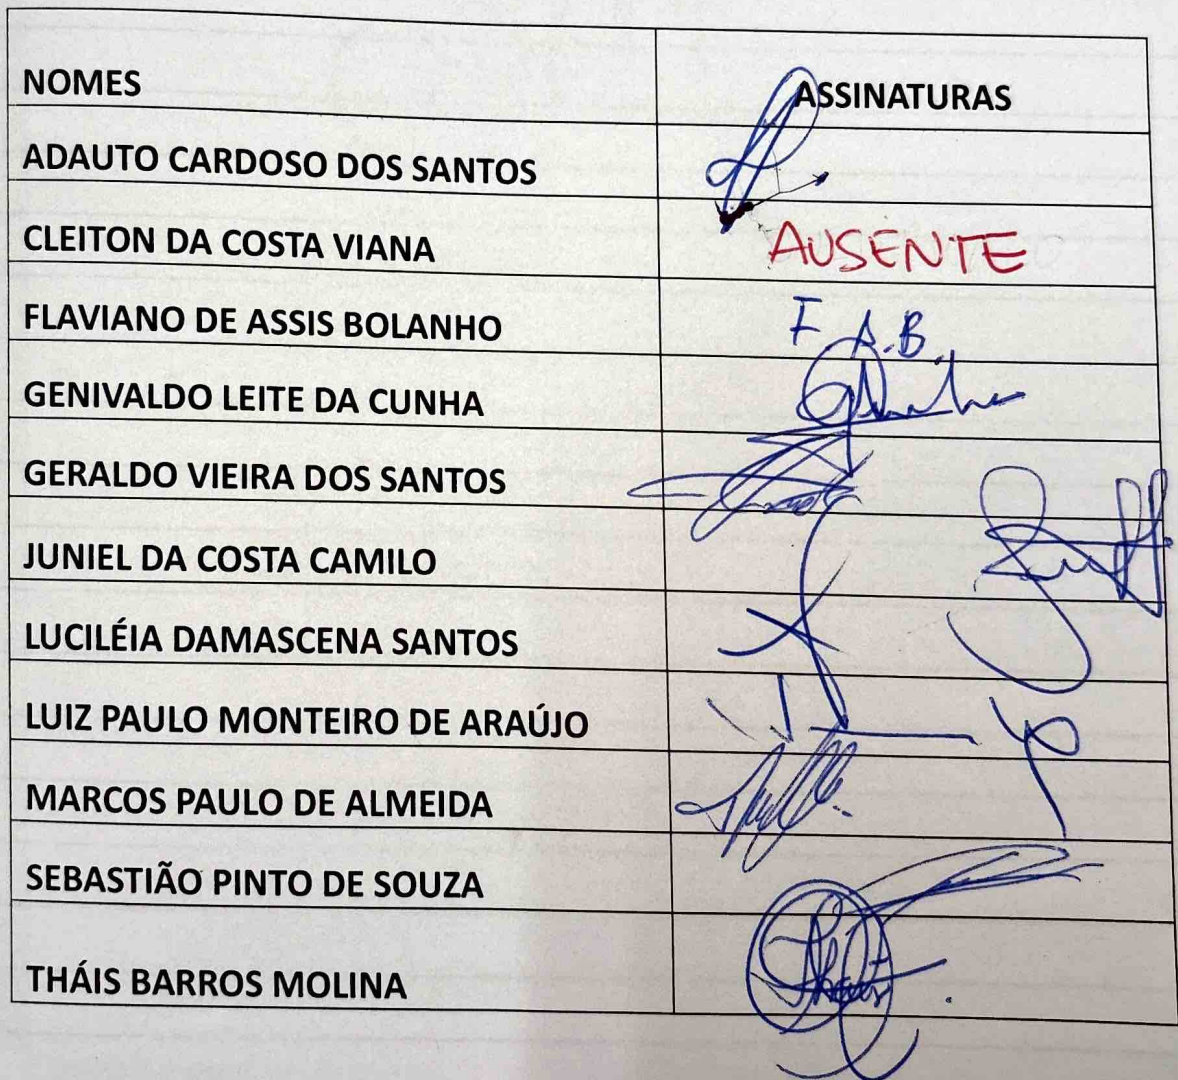 NOMES ASSINATURAS
ADAUTO CARDOSO DOS SANTOS
CLEITON DA COSTA VIANA AUSENTE
FLAVIANO DE ASSIS BOLANHO F A.B.
GENIVALDO LEITE DA CUNHA
GERALDO VIEIRA DOS SANTOS
JUNIEL DA COSTA CAMILO
LUCILÉIA DAMASCENA SANTOS
LUIZ PAULO MONTEIRO DE ARAÚJO
MARCOS PAULO DE ALMEIDA
SEBASTIÃO PINTO DE SOUZA
THÁIS BARROS MOLINA